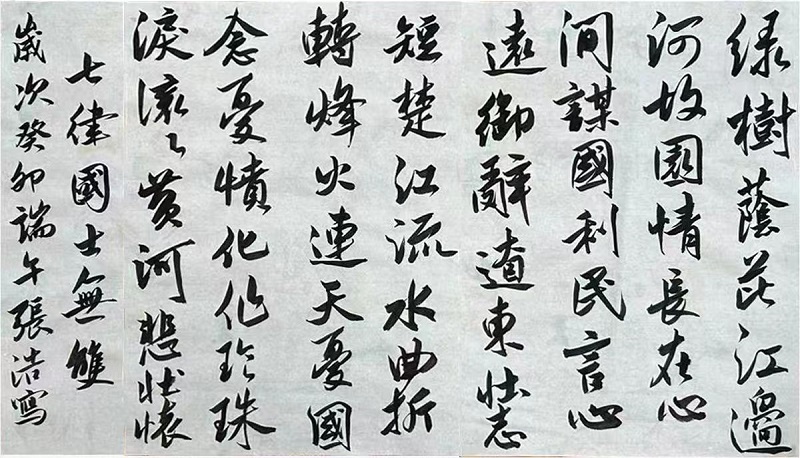 绿樹蔭芘江邊
河故園情長在心
间謀國利民言心
遠御辭遼東壯志
短楚江流水曲折
轉烽火連天憂國
念憂憤化作珍珠
淚滾々黃河悲壯懷
七律國士無雙
歲次癸卯端午張浩寫